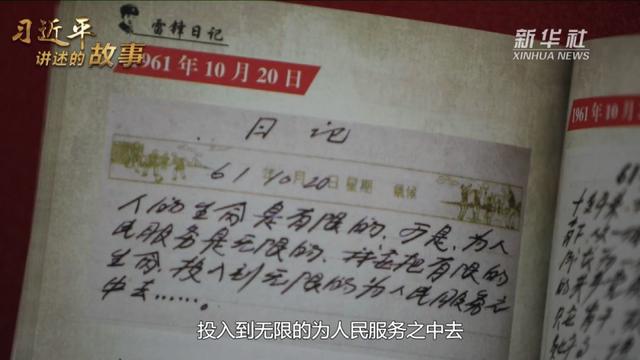 习近平
讲述的故事
雷锋日记
新华社
XINHUA NEWS
1961年10月20日
日记
61 10月20日 星期 气候
人的生命是有限的,可是,为人
民服务是无限的,我要把有限的
生命,投入到无限的为人民服务之
中去……。
1961年10月
投入到无限的为人民服务之中去